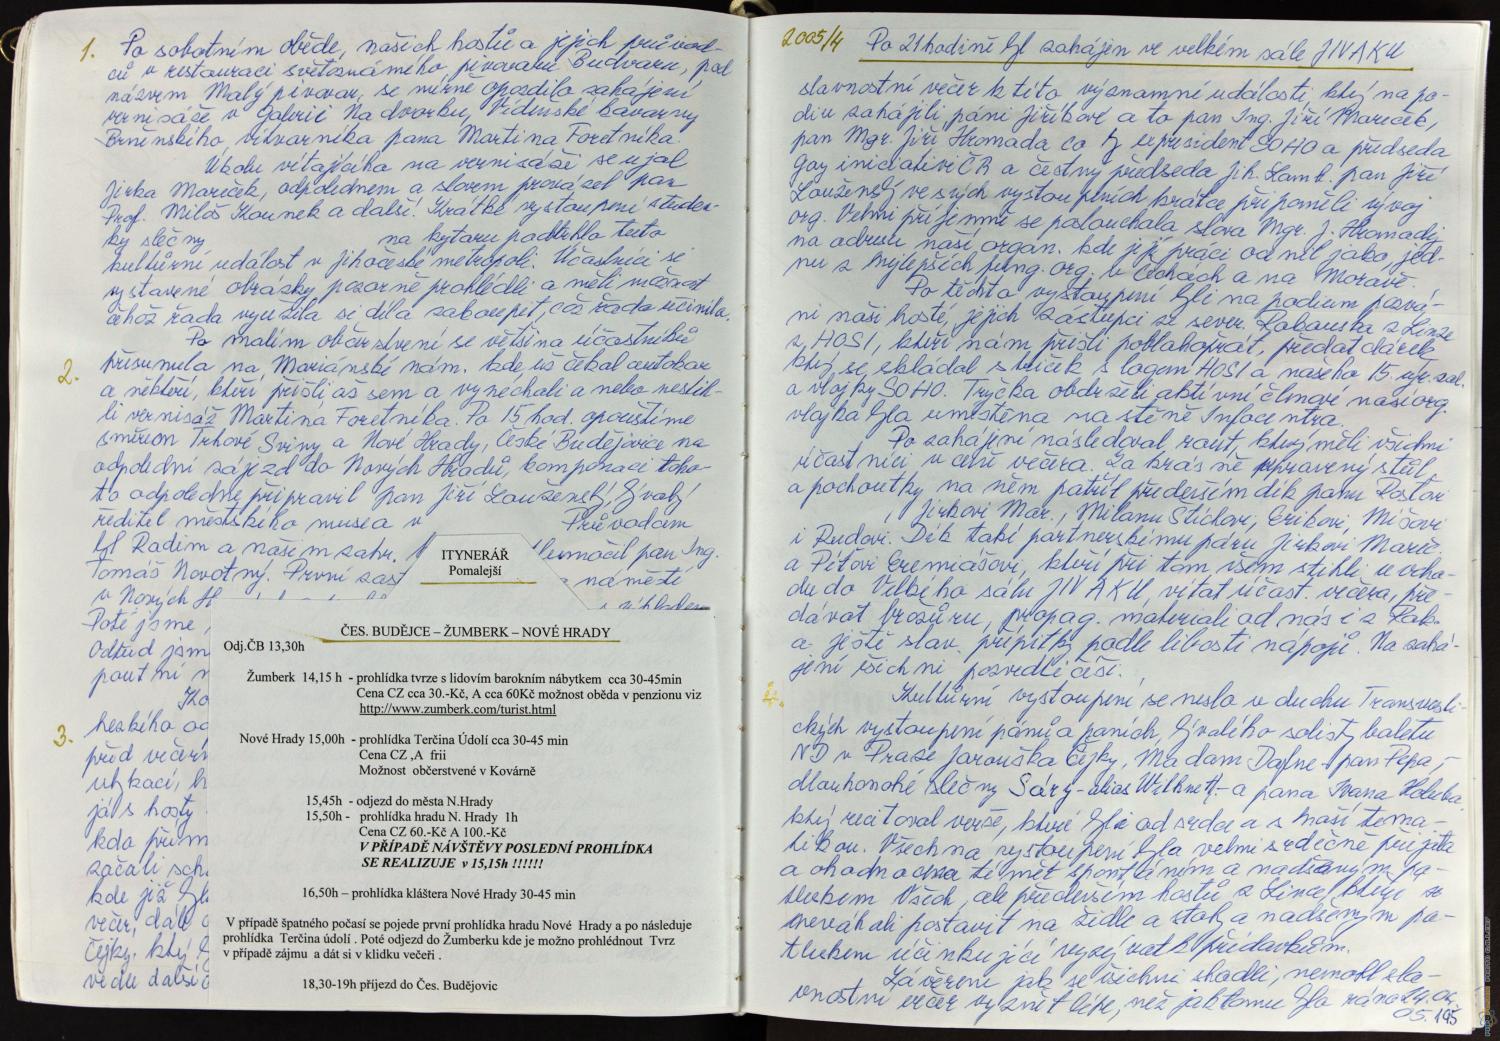 1. Po sobotním obědě, našich hostů a jejich průvod-
ců v restauraci světoznámého pivovaru Budvaru, pod
názvem Malý pivovar, se mírně opozdilo zahájení
vernisáže v Galerii Na dvorku, Vídeňské kavárny
Brněnského výtvarníka pana Martina Foretníka.
Úkolu vítajícího na vernisáži se ujal
Jirka Mareček, odpolednem a slovem provázel pan
Prof. Miloš Kounek a další! Krátké vystoupení student-
ky slečny na kytaru podtrhlo tuto
kulturní událost v jihočeské metropoli. Účastníci si
vystavené obrázky pozorně prohlédli a měli možnost
čehož řada využila si díla zakoupit, což řada učinila.
Po malém občerstvení se většina účastníků
2. přesunula na Mariánské nám. kde už čekal autokar
a někteří, kteří přišli až sem a vynechali a nebo nestih-
li vernisáž Martina Foretníka. Po 15 hod. opouštíme
směrem Trhové Sviny a Nové Hrady, České Budějovice na
odpolední zájezd do Nových Hradů, komponaci toho-
to odpoledne připravil pan Jiří Louženský, bývalý
ředitel městského musea v Průvodcem
byl Radim a naším zahr. tlumočil pan Ing.
Tomáš Novotný. První zast náměstí
v Nových H
Poté jsme
Odtud jsm
poutní m
3. hezkého od
před večer
kdo přím
začali sch
kde již byl
večer, dále
Čejky, který
vedle další
ITYNERÁŘ
Pomalejší
ČES. BUDĚJCE – ŽUMBERK – NOVÉ HRADY
Odj.ČB 13,30h
Žumberk 14,15 h - prohlídka tvrze s lidovím barokním nábytkem cca 30-45min
Cena CZ cca 30.-Kč, A cca 60Kč možnost oběda v penzionu viz
http://www.zumberk.com/turist.html
Nové Hrady 15,00h - prohlídka Terčina Údolí cca 30-45 min
Cena CZ ,A frii
Možnost občerstvené v Kovárně
15,45h - odjezd do města N.Hrady
15,50h - prohlídka hradu N. Hrady 1h
Cena CZ 60.-Kč A 100.-Kč
V PŘÍPADĚ NÁVŠTĚVY POSLEDNÍ PROHLÍDKA
SE REALIZUJE v 15,15h !!!!!!
16,50h – prohlídka kláštera Nové Hrady 30-45 min
V případě špatného počasí se pojede první prohlídka hradu Nové Hrady a po následuje
prohlídka Terčina údolí . Poté odjezd do Žumberku kde je možno prohlédnout Tvrz
v případě zájmu a dát si v klidku večeři .
18,30-19h příjezd do Čes. Budějovic
2005/4 Po 21 hodině byl zahájen ve velkém sále JIVAKU
slavnostní večer k této významné události, který na po-
diu zahájili páni Jiříkové a to pan Ing. Jiří Mareček,
pan Mgr. Jiří Hromada co b. president SOHO a předseda
Gay iniciativi ČR a čestný předseda Jih. Lamb. pan Jiří
Louženský ve svých vystoupeních krátce připoměli vývoj
org. Velmi příjemně se poslouchala slova Mgr. J. Hromady
na adresu naší organ. kde její práci ocenil jako jed-
nu z nejlepších fung. org. v Čechách a na Moravě.
Po těchto vystoupení byli na podium pozvá-
ni naši hosté, jejich zástupci ze sever. Rakouska z Lince
z HOSI, kteří nám přišli poblahopřát, předat dárek
který se skládal z triček s logem HOSI a našeho 15. výr. zal.
a vlajky SOHO. Trička obdrželi aktivní členové naší org.
vlajka byla umístěna na stěně Infocentra.
Po zahájení následoval raut, který měli všichni
účastníci v ceně večera. Za krásně připravený stůl
a pochoutky na něm patřil především dík panu Rostovi
, Jirkovi Mar., Milanu Štichovi, Erikovi, Míšovi
i Rudovi. Dík také partnerskému páru Jirkovi Mareč.
a Péťovi Eremiášovi, kteří při tom všem stihli u vcho-
du do Velkého sálu JIVAKU, vítat účast. večera, pře-
dávat brožůru, propag. materiali od nás i z Rak.
a ještě slav. přípitky podle libosti nápojů. Na zahá-
jení všichni pozvedli číši.
Kulturní vystoupení se neslo v duchu Transvesti-
ckých vystoupení pánů a paních, bývalého solisty baletu
ND v Praze Jarouška Čejky, Madam Dafne - pan Pepa,
dlouhonohé slečny Sáry - alias Wilhnett - a pana Ivana Holuba
který recitoval verše, které byli od srdce a s naší tema-
tikou. Všechna vystoupení byla velmi srdečně přijata
a ohodnocena též mět spontáním a nadšeným po-
tleskem všech, ale především hostů z Lince, kteří se
neváhali postavit na židle a stoly a nadšeným po-
tleskem účinkující vyzývat k přídavkům.
Závěrem jak se všichni shodli, nemohl sla-
vnostní večer vyznít lépe, než jak tomu bylo ráno 24.04.
05. 195